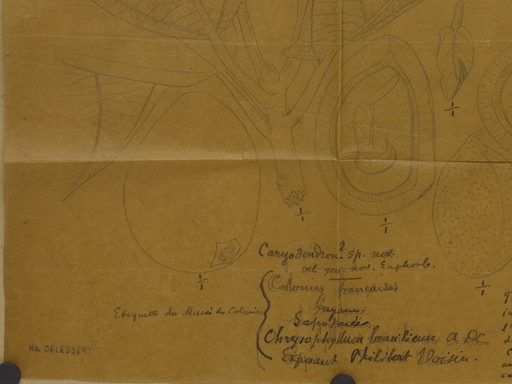 1/1
1/1
1/1
1/1
1/1
Caryodendron? sp. nov.
vel gen. nov. Euphorb.
Colonies françaises
Etiquette du Musée des Colonies
Guyane
Chrysophyllum brasiliense A DC
Exposant Philibert Voisin.
Hb. DELESSERT